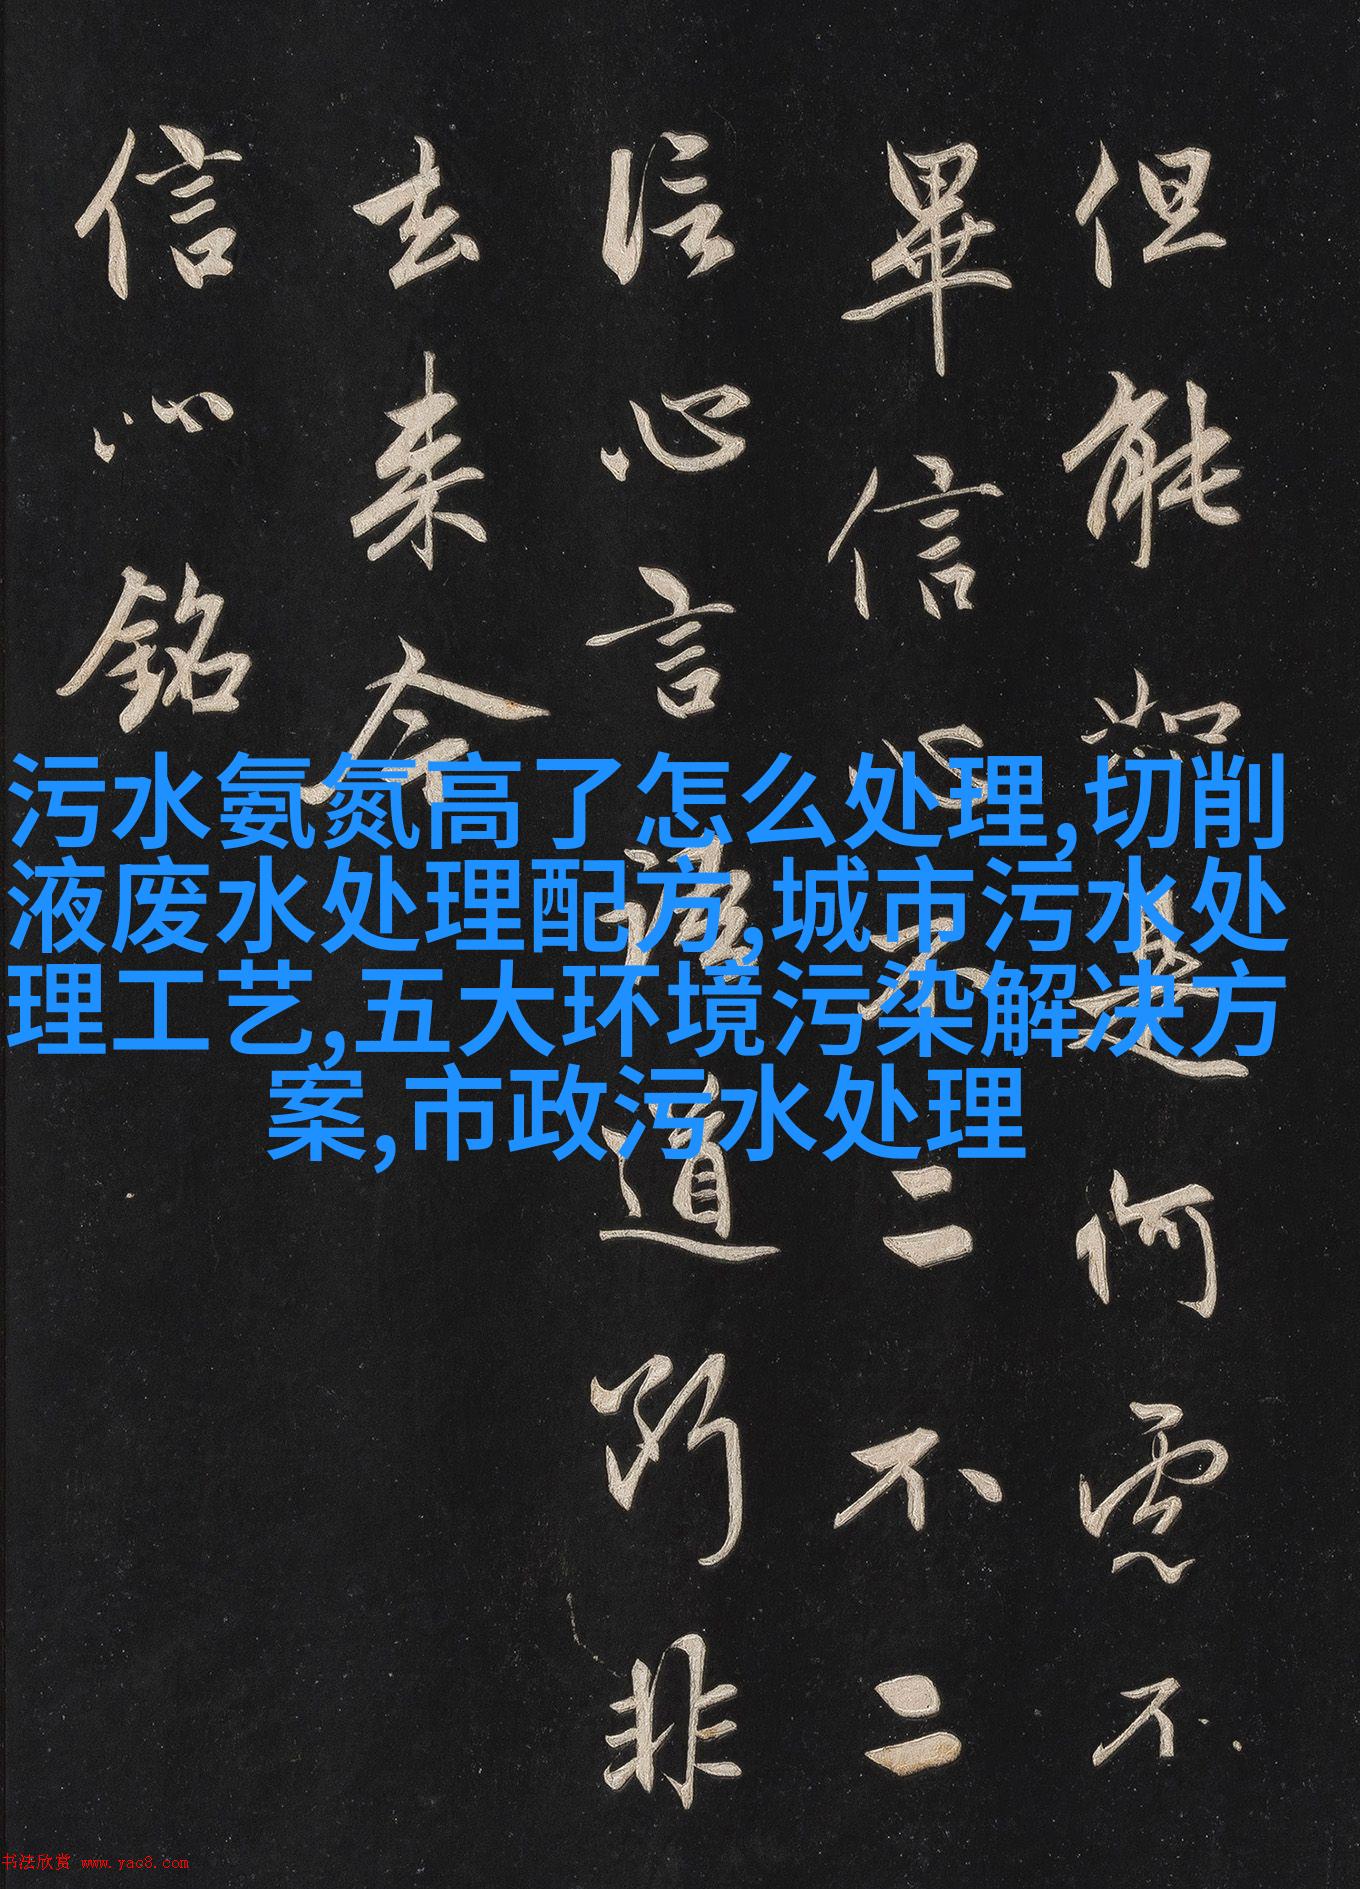 但能如是何虑不
毕信心不二不二
信心言语道断非
去来今
信心铭
污水氨氮高了怎么处理,切削
液废水处理配方,城市污水处
理工艺,五大环境污染解决方
案,市政污水处理
书法欣赏 www.yac8.com